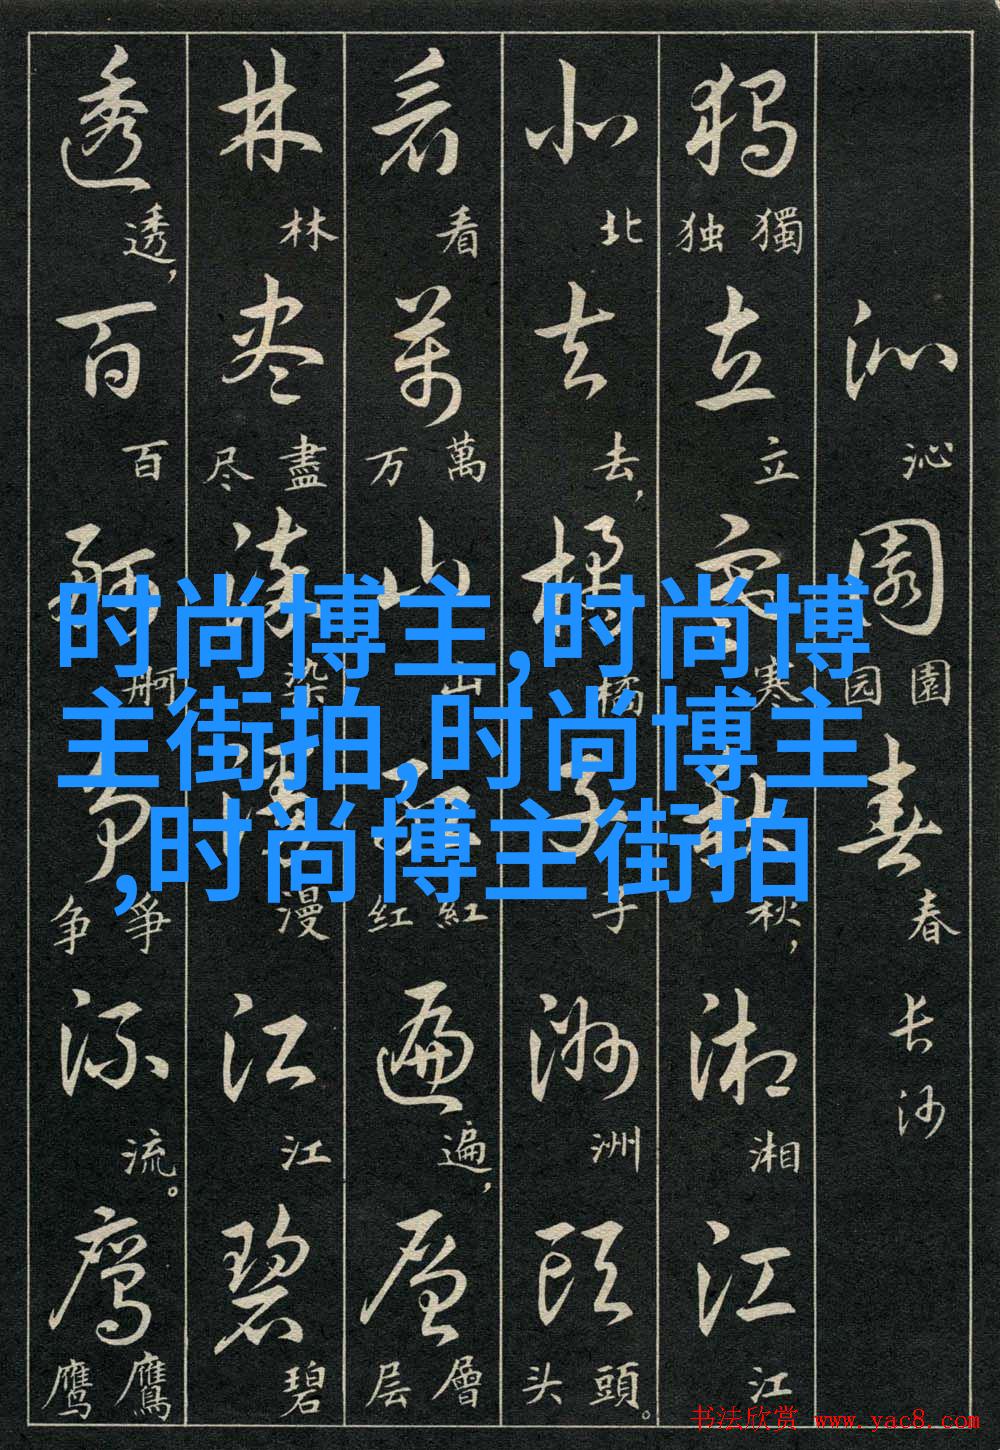 时尚博主,时尚博
主街拍,时尚博主
,时尚博主街拍
沁園春
沁 园園 春 长沙
獨立寒秋湘江
独獨 立 寒 秋， 湘 江
北去橘子洲頭
北 去， 橘 子 洲 头頭。
看萬山紅遍層
看 万萬 山 红紅 遍， 层層
林尽染漫江碧
林 尽盡 染 漫 江 碧
透百舸争流鹰
透， 百 舸 争爭 流。 鹰鷹
书法欣赏 www.yac8.com